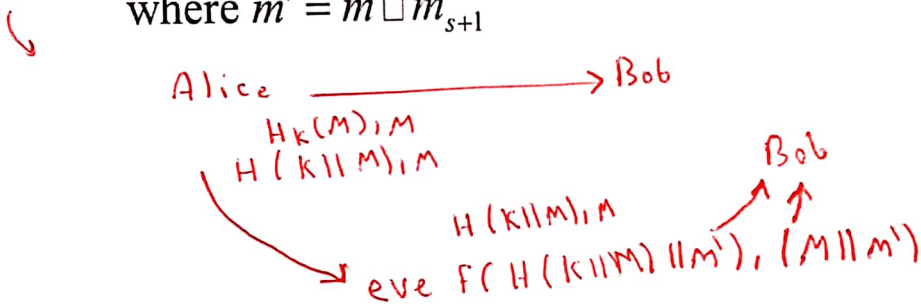 where m' = m □ m_{s+1}
Alice → Bob
H_K(M), M
H(K||M), M
Bob
H(K||M), M
eve F(H(K||M)||M'), (M||M')